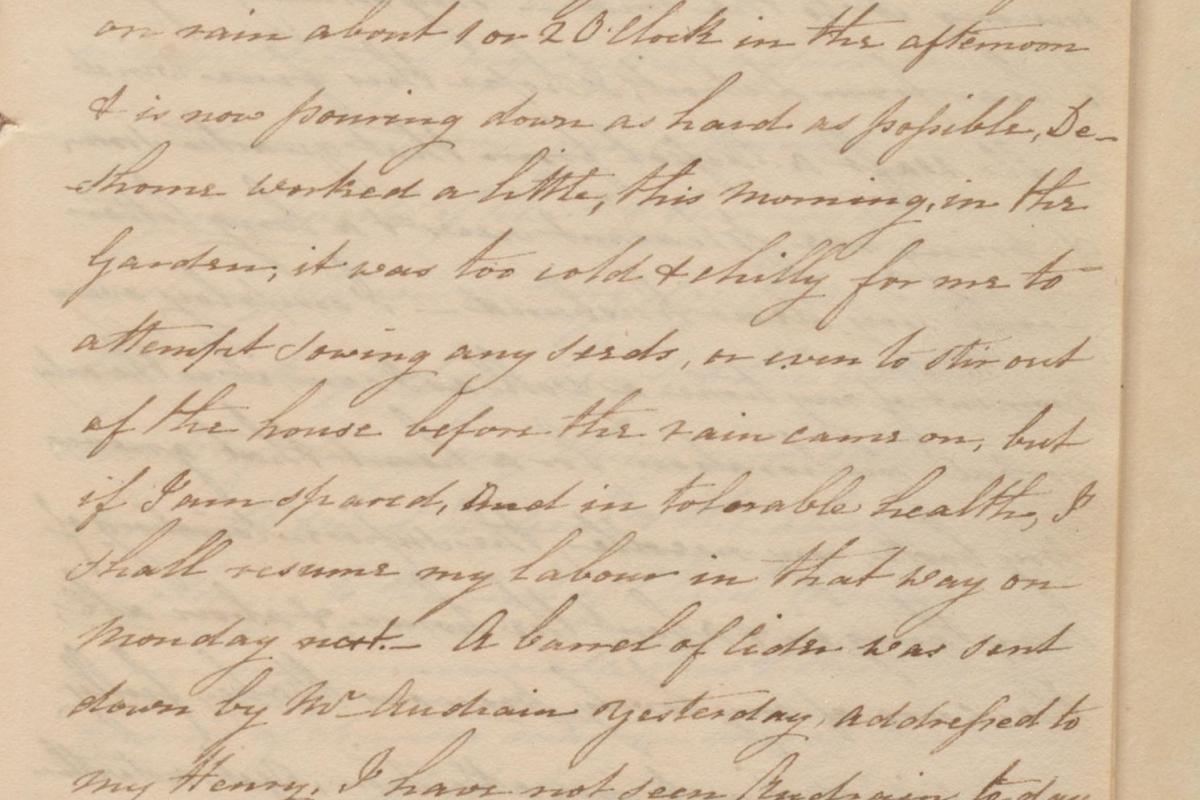 on rain about 1 or 2 O'Clock in the afternoon
& is now pouring down as hard as possible, De-
-shome worked a little, this morning, in the
Garden, it was too cold & chilly for me to
attempt sowing any seeds, or even to stir out
of the house before the rain came on, but
if I am spared, and in tolerable health, I
shall resume my labour in that way on
Monday next.— A barrel of Cider was sent
down by Mr Audrain yesterday, addressed to
my Henry, I have not seen Audrain to day